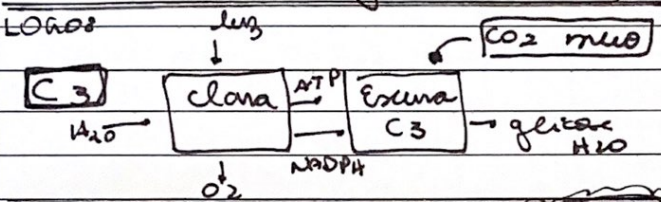 LOGO8
luz
CO2 meio
C3
Clara
ATP
Escura
C3
H2O
NADPH
glicose
H2O
O2